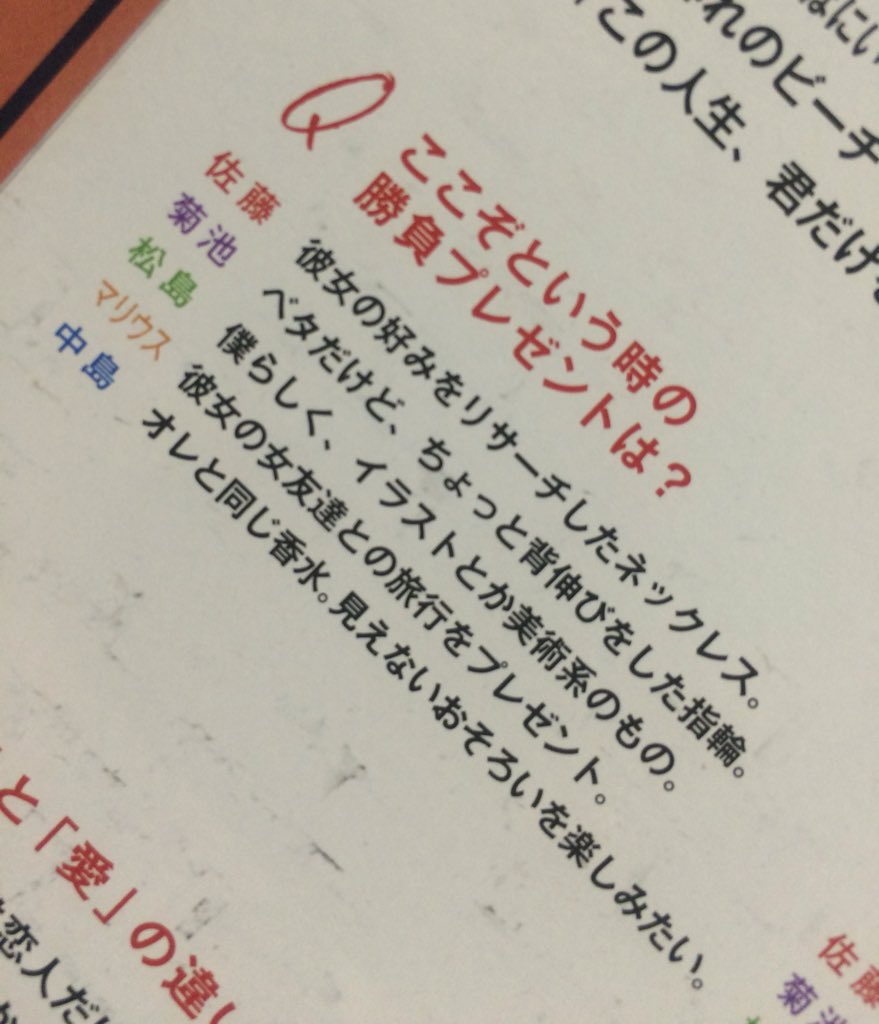 れのビーチ
この人生、君だけ
Q ここぞという時の
勝負プレゼントは?
佐藤 彼女の好みをリサーチしたネックレス。
菊池 ベタだけど、ちょっと背伸びをした指輪。
松島 僕らしく、イラストとか美術系のもの。
マリウス 彼女の女友達との旅行をプレゼント。
中島 オレと同じ香水。見えないおそろいを楽しみたい。
と「愛」の違い
恋人だ
佐藤
菊池